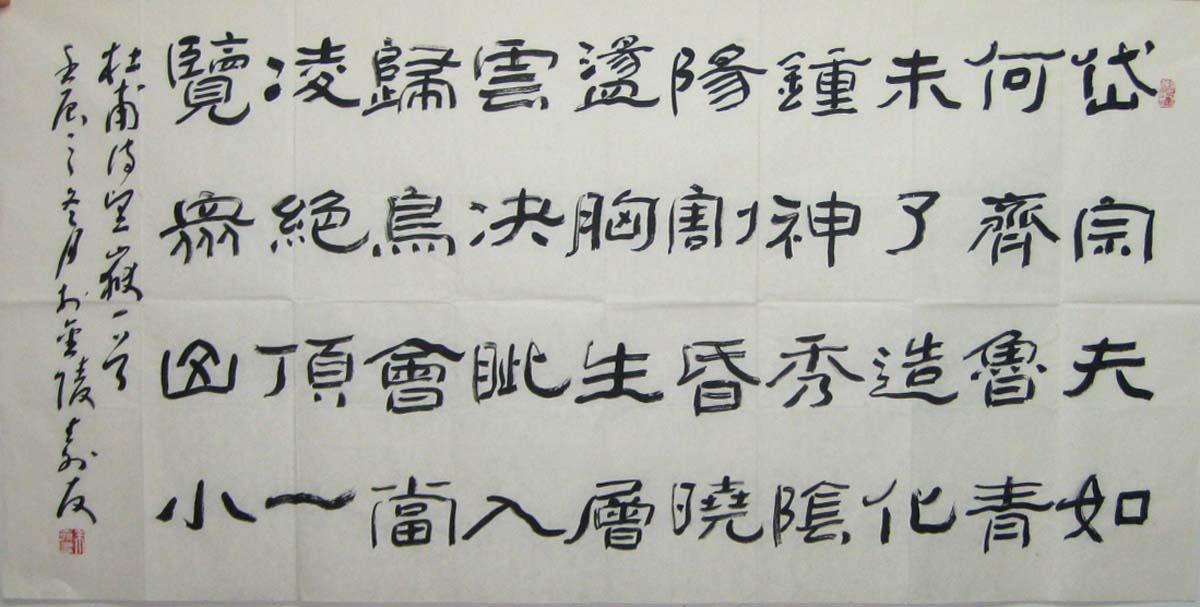 岱宗夫如
何齊魯青
未了造化
鍾神秀陰
陽割昏曉
盪胸生層
雲決眦入
歸鳥會當
凌絕頂一
覽眾山小
杜甫詩望嶽一首
壬辰之冬月於金陵友